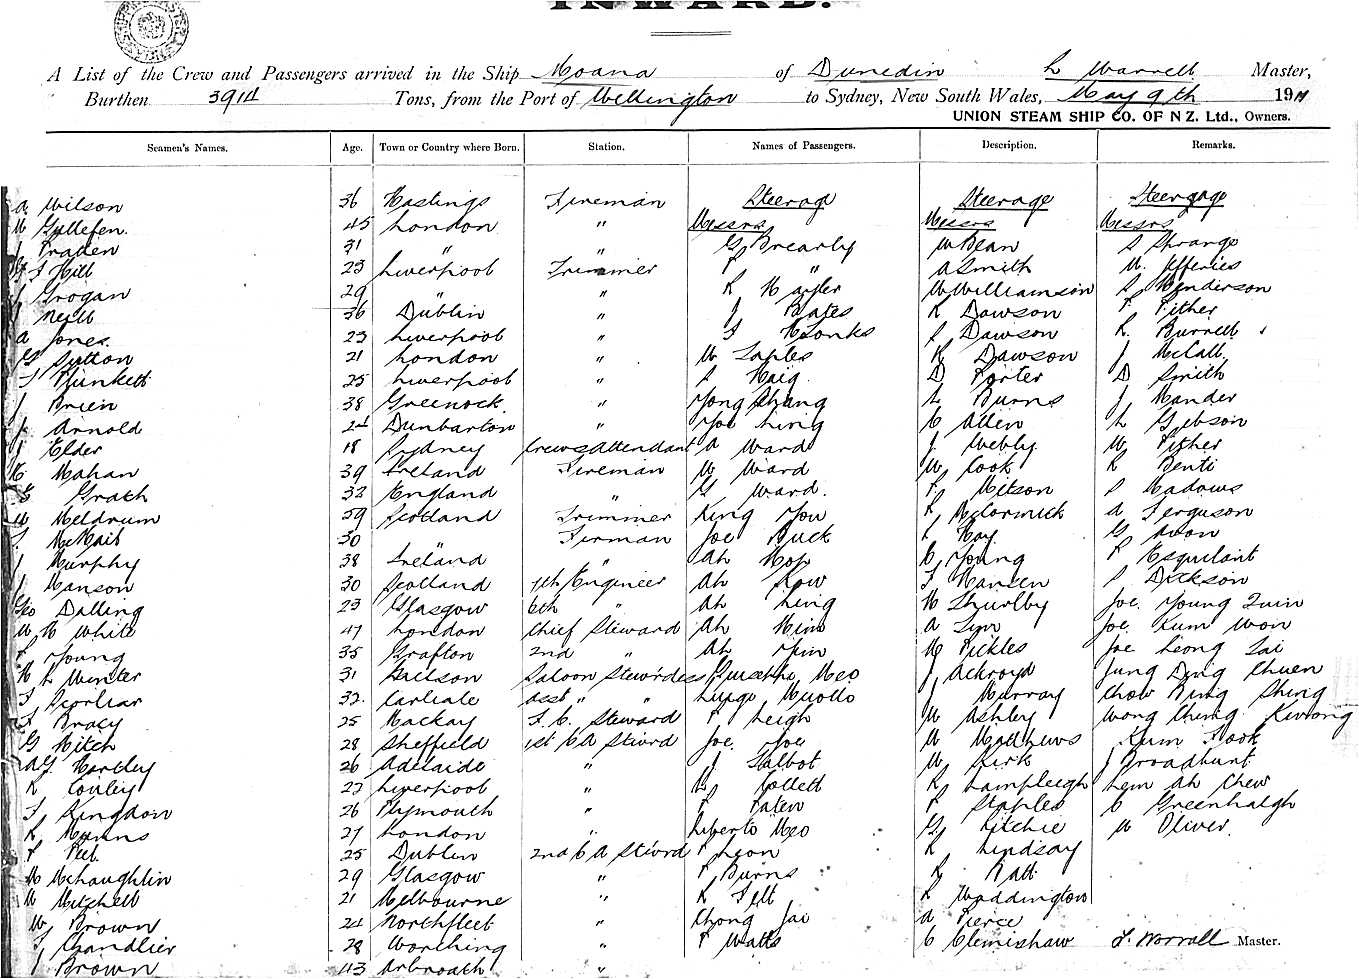 INWARD.
A List of the Crew and Passengers arrived in the Ship Moana of Dunedin L Worrall Master,
Burthen 3914 Tons, from the Port of Wellington to Sydney, New South Wales, May 9th 191
UNION STEAM SHIP CO. OF N Z. Ltd., Owners.
Seamen's Names. Age. Town or Country where Born. Station. Names of Passengers. Description. Remarks.
A Wilson 36 Hastings Fireman Steerage Steerage Steerage
W 45 London " Messrs Messrs Messrs
31 " " G Brearly W Bean S Sprange
Hill 23 Liverpool Trimmer " A Smith W. Jefferies
J Grogan 29 " " R W Williamson S Henderson
J Neill 36 Dublin " J Bates R Dawson P Pither
A Jones 23 Liverpool " F Monks P Dawson R. Burrell
G Sutton 21 London " W Saples R Dawson J McCall
T Plunkett 25 Liverpool " S Haig D Porter D Smith
J Brien 38 Greenock " Yong Shang L Burns J Mander
J Arnold 24 Dunbarton " Yoe Ling C Allen L Gibson
J Elder 18 Sydney Crews Attendant A Ward J Webly W Pither
C Mahan 39 Ireland Fireman W Ward W Cook R Benti
Grath 32 England " G Ward. P Mitson S Madows
W Meldrum 59 Scotland Trimmer King You R McCormick A Ferguson
T McNair 30 " Firman Joe Buck Hay G Avon
J Murphy 38 Ireland " Ah Hop C Young
J Hanson 30 Scotland 7th Engineer Ah Kow F Hansen S Dickson
Geo Dalling 23 Glasgow 6th " Ah Ling W Thurlby Joe. Young Quin
W H White 47 London Chief Steward Ah Him A Lyn Joe. Kum Won
Young 35 Grafton 2nd " Ah Yin W Pickles Joe Leong Tai
L Winter 31 Saloon Stew'rdess Meo J Ackroyd Jung Ding Chuen
32 Carlisle asst " " Luigo J Murray Chow Bing Shing
F Bracy 25 Mackay F. C. Steward P Leigh W Ashley Wong Ching
G Hitch 28 Sheffield 1st C A Stiord Joe. Yoe W Matthews Kum
A G Hartley 26 Adelaide " J Talbot W Kirk J Broadhurst
R Conley 27 Liverpool " Collett R Lampleigh Lem Ah Chew
F Kingdon 26 Plymouth " P Paten P Staples C Greenhalgh
R Manns 27 London " Liberto Meo G Ritchie W Oliver.
P Peel 25 Dublin 2nd C A Stiord P Leon R Lindsay
W McLaughlin 29 Glasgow " P Burns R Batt
W Mitchell 21 Melbourne " R Felt R Waddington
W Brown 24 Northfleet " Chong Jai A Pierce
J Chandlier 28 Worthing " P Watts C Clemishaw L. Worrall Master.
J Brown 43 Arbroath "